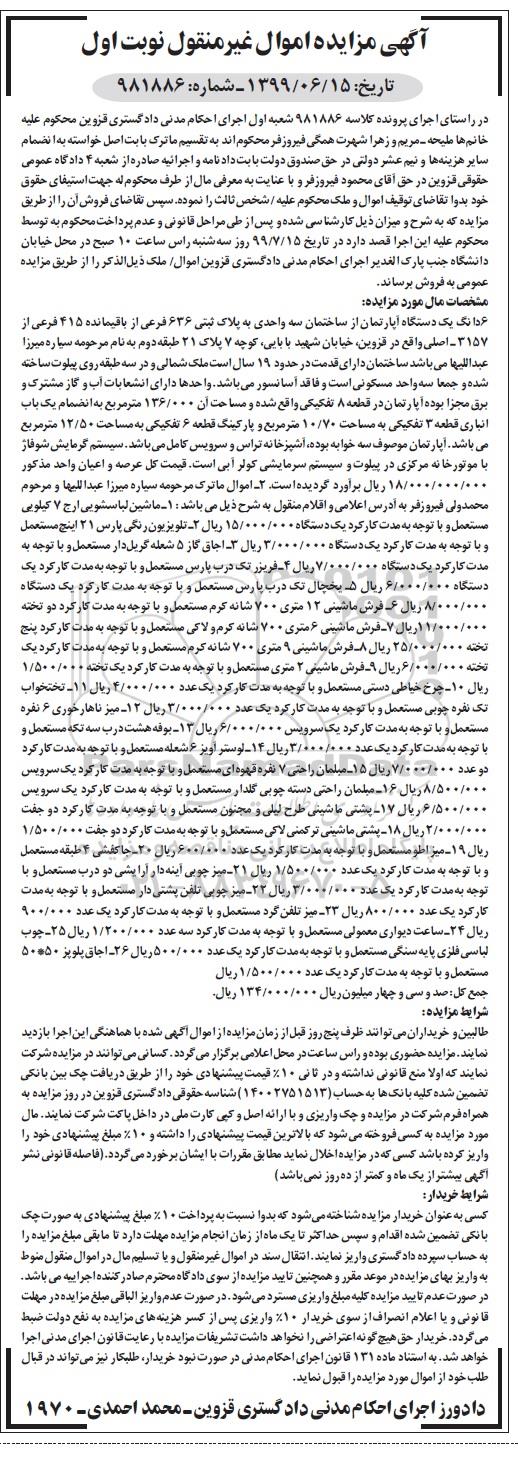 آگهی مزایده اموال غیرمنقول نوبت اول
تاریخ: ۱۳۹۹/۰۶/۱۵ ـ شماره: ۹۸۱۸۸۶
در راستای اجرای پرونده کلاسه ۹۸۱۸۸۶ شعبه اول اجرای احکام مدنی دادگستری قزوین محکوم علیه
خانم‌ها ملیحه ـ مریم و زهرا شهرت همگی فیروزفر محکوم‌اند به تقسیم ماترک بابت اصل خواسته به انضمام
سایر هزینه‌ها و نیم عشر دولتی در حق صندوق دولت بابت دادنامه و اجرائیه صادره از شعبه ۴ دادگاه عمومی
حقوقی قزوین در حق آقای محمود فیروزفر و با عنایت به معرفی مال از طرف محکوم له جهت استیفای حقوق
خود بدوا تقاضای توقیف اموال و ملک محکوم علیه / شخص ثالث را نموده. سپس تقاضای فروش آن را از طریق
مزایده که به شرح و میزان ذیل کارشناسی شده و پس از طی مراحل قانونی و عدم پرداخت محکوم به توسط
محکوم علیه این اجرا قصد دارد در تاریخ ۹۹/۷/۱۵ روز سه شنبه راس ساعت ۱۰ صبح در محل خیابان
دانشگاه جنب پارک الغدیر اجرای احکام مدنی دادگستری قزوین اموال/ ملک ذیل‌الذکر را از طریق مزایده
عمومی به فروش برساند.
مشخصات مال مورد مزایده:
۶دانگ یک دستگاه آپارتمان از ساختمان سه واحدی به پلاک ثبتی ۶۳۶ فرعی از باقیمانده ۴۱۵ فرعی از
۳۱۵۷ ـ اصلی واقع در قزوین، خیابان شهید بابایی، کوچه ۷ پلاک ۲۱ طبقه دوم به نام مرحومه سیاره میرزا
عبداللیها می‌باشد ساختمان دارای قدمت در حدود ۱۹ سال است ملک شمالی و در سه طبقه روی پیلوت ساخته
شده و جمعا سه واحد مسکونی است و فاقد آسانسور می‌باشد. واحدها دارای انشعابات آب و گاز مشترک و
برق مجزا بوده آپارتمان در قطعه ۸ تفکیکی واقع شده و مساحت آن ۱۳۶/۰۰۰ مترمربع به انضمام یک باب
انباری قطعه ۳ تفکیکی به مساحت ۱۰/۷۰ مترمربع و پارکینگ قطعه ۶ تفکیکی به مساحت ۱۲/۵۰ مترمربع
می باشد. آپارتمان موصوف سه خوابه بوده، آشپزخانه تراس و سرویس کامل می‌باشد. سیستم گرمایش شوفاژ
با موتورخانه مرکزی در پیلوت و سیستم سرمایشی کولر آبی است. قیمت کل عرصه و اعیان واحد مذکور
۱۸/۰۰۰/۰۰۰/۰۰۰ ریال برآورد گردیده است. ۲ـ اموال ماترک مرحومه سیاره میرزا عبداللیها و مرحوم
محمدولی فیروزفر به آدرس اعلامی و اقلام منقول به شرح ذیل می باشد : ۱ـ ماشین لباسشویی ارج ۷ کیلویی
مستعمل و با توجه به مدت کارکرد یک دستگاه ۱۵/۰۰۰/۰۰۰ ریال ۲ـ تلویزیون رنگی پارس ۲۱ اینچ مستعمل
و با توجه به مدت کارکرد یک دستگاه ۳/۰۰۰/۰۰۰ ریال ۳ـ اجاق گاز ۵ شعله گریل دار مستعمل و با توجه به
مدت کارکرد یک دستگاه ۷/۰۰۰/۰۰۰ ریال ۴ـ فریزر تک درب پارس مستعمل و با توجه به مدت کارکرد یک
دستگاه ۶/۰۰۰/۰۰۰ ریال ۵ـ یخچال تک درب پارس مستعمل و با توجه به مدت کارکرد یک دستگاه
۸/۰۰۰/۰۰۰ ریال ۶ـ فرش ماشینی ۱۲ متری ۷۰۰ شانه کرم مستعمل و با توجه به مدت کارکرد دو تخته
۱۱/۰۰۰/۰۰۰ ریال ۷ـ فرش ماشینی ۶ متری ۷۰۰ شانه کرم و لاکی مستعمل و با توجه به مدت کارکرد پنج
تخته ۲۵/۰۰۰/۰۰۰ ریال ۸ـ فرش ماشینی ۹ متری ۷۰۰ شانه کرم مستعمل و با توجه به مدت کارکرد یک
تخته ۶/۰۰۰/۰۰۰ ریال ۹ـ فرش ماشینی ۲ متری مستعمل و با توجه به مدت کارکرد یک تخته ۱/۵۰۰/۰۰۰
ریال ۱۰ـ چرخ خیاطی دستی مستعمل و با توجه به مدت کارکرد یک عدد ۴/۰۰۰/۰۰۰ ریال ۱۱ـ تختخواب
تک نفره چوبی مستعمل و با توجه به مدت کارکرد یک عدد ۳/۰۰۰/۰۰۰ ریال ۱۲ـ میز ناهارخوری ۶ نفره
مستعمل و با توجه به مدت کارکرد یک سرویس ۶/۰۰۰/۰۰۰ ریال ۱۳ـ بوفه هشت درب سه تکه مستعمل و
با توجه به مدت کارکرد یک عدد ۳/۰۰۰/۰۰۰ ریال ۱۴ـ لوستر آویز ۶ شعله مستعمل و با توجه به مدت کارکرد
دو عدد ۷/۰۰۰/۰۰۰ ریال ۱۵ـ مبلمان راحتی ۷ نفره قهوه‌ای مستعمل و با توجه به مدت کارکرد یک سرویس
۸/۵۰۰/۰۰۰ ریال ۱۶ـ مبلمان راحتی دسته چوبی گلدار مستعمل و با توجه به مدت کارکرد یک سرویس
۶/۵۰۰/۰۰۰ ریال ۱۷ـ پشتی ماشینی طرح لیلی و مجنون مستعمل و با توجه به مدت کارکرد دو جفت
۲/۰۰۰/۰۰۰ ریال ۱۸ـ پشتی ماشینی ترکمنی لاکی مستعمل و با توجه به مدت کارکرد دو جفت ۱/۵۰۰/۰۰۰
ریال ۱۹ـ میز اطو مستعمل و با توجه به مدت کارکرد یک عدد ۶۰۰/۰۰۰ ریال ۲۰ـ جاکفشی ۴ طبقه مستعمل
و با توجه به مدت کارکرد یک عدد ۱/۵۰۰/۰۰۰ ریال ۲۱ـ میز چوبی آینه‌دار آرایشی دو درب مستعمل و با
توجه به مدت کارکرد یک عدد ۳/۰۰۰/۰۰۰ ریال ۲۲ـ میز چوبی تلفن پشتی دار مستعمل و با توجه به مدت
کارکرد یک عدد ۸۰۰/۰۰۰ ریال ۲۳ـ میز تلفن گرد مستعمل و با توجه به مدت کارکرد یک عدد ۹۰۰/۰۰۰
ریال ۲۴ـ ساعت دیواری معمولی مستعمل و با توجه به مدت کارکرد سه عدد ۱/۲۰۰/۰۰۰ ریال ۲۵ـ چوب
لباسی فلزی پایه سنگی مستعمل و با توجه به مدت کارکرد یک عدد ۵۰۰/۰۰۰ ریال ۲۶ـ اجاق پلوپز ۵۰*۵۰
مستعمل و با توجه به مدت کارکرد یک عدد ۱/۵۰۰/۰۰۰ ریال
جمع کل: صد و سی و چهار میلیون ریال ۱۳۴/۰۰۰/۰۰۰ ریال.
شرایط مزایده:
طالبین و خریداران می‌توانند ظرف پنج روز قبل از زمان مزایده از اموال آگهی شده با هماهنگی این اجرا بازدید
نمایند. مزایده حضوری بوده و راس ساعت در محل اعلامی برگزار می‌گردد. کسانی می‌توانند در مزایده شرکت
نمایند که اولا منع قانونی نداشته و در ثانی ۱۰٪ قیمت پیشنهادی خود را از طریق دریافت چک بین بانکی
تضمین شده کلیه بانک‌ها به حساب (۱۴۰۰۲۷۵۱۵۱۳) شناسه حقوقی دادگستری قزوین در روز مزایده به
همراه فرم شرکت در مزایده و چک واریزی و با ارائه اصل و کپی کارت ملی در داخل پاکت شرکت نمایند. مال
مورد مزایده به کسی فروخته می‌شود که بالاترین قیمت پیشنهادی را داشته و ۱۰٪ مبلغ پیشنهادی خود را
واریز کرده باشد کسی که در مزایده اخلال نماید مطابق مقررات با ایشان برخورد می‌گردد. (فاصله قانونی نشر
آگهی بیشتر از یک ماه و کمتر از ده روز نمی‌باشد)
شرایط خریدار:
کسی به عنوان خریدار مزایده شناخته می‌شود که بدوا نسبت به پرداخت ۱۰٪ مبلغ پیشنهادی به صورت چک
بانکی تضمین شده اقدام و سپس حداکثر تا یک ماه از زمان انجام مزایده مهلت دارد تا مابقی مبلغ مزایده را
به حساب سپرده دادگستری واریز نمایند. انتقال سند در اموال غیرمنقول و یا تسلیم مال در اموال منقول منوط
به واریز بهای مزایده در موعد مقرر و همچنین تایید مزایده از سوی دادگاه محترم صادرکننده اجراییه می باشد.
در صورت عدم تایید مزایده کلیه مبلغ واریزی مسترد می‌شود. در صورت عدم واریز الباقی مبلغ مزایده در مهلت
قانونی و یا اعلام انصراف از سوی خریدار ۱۰٪ واریزی پس از کسر هزینه‌های مزایده به نفع دولت ضبط
می‌گردد. خریدار حق هیچ گونه اعتراضی را نخواهد داشت تشریفات مزایده با رعایت قانون اجرای مدنی اجرا
خواهد شد. به استناد ماده ۱۳۱ قانون اجرای احکام مدنی در صورت نبود خریدار، طلبکار نیز می‌تواند در قبال
طلب خود از اموال مورد مزایده را قبول نماید.
دادورز اجرای احکام مدنی دادگستری قزوین ـ محمد احمدی ـ ۱۹۷۰